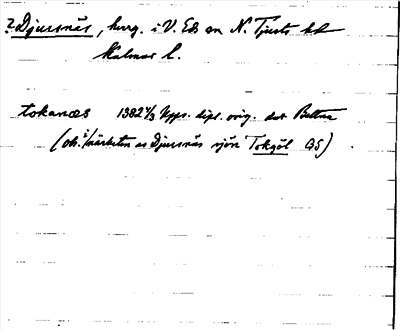 ? Djursnäs, herrg. i V. Ed sn N. Tjusts hd
Kalmar l.
tokanæs 1382 4/3 Upps. dipl. orig. dat
(ob. i närheten av Djursnäs sjön Tokgöl GS)